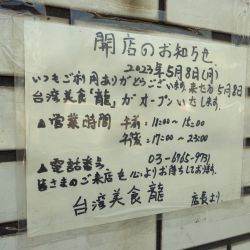 開店のお知らせ
2023年5月8日(月)
いつもご利用ありがとうございます。来たる5月8日
台湾美食「龍」がオープンいたします。
▲営業時間 午前:11:00~15:00
午後:17:00~23:00
▲電話番号 03-6765-9731
皆さまのご来店を心よりお待ちしております。
台湾美食 龍 店長より